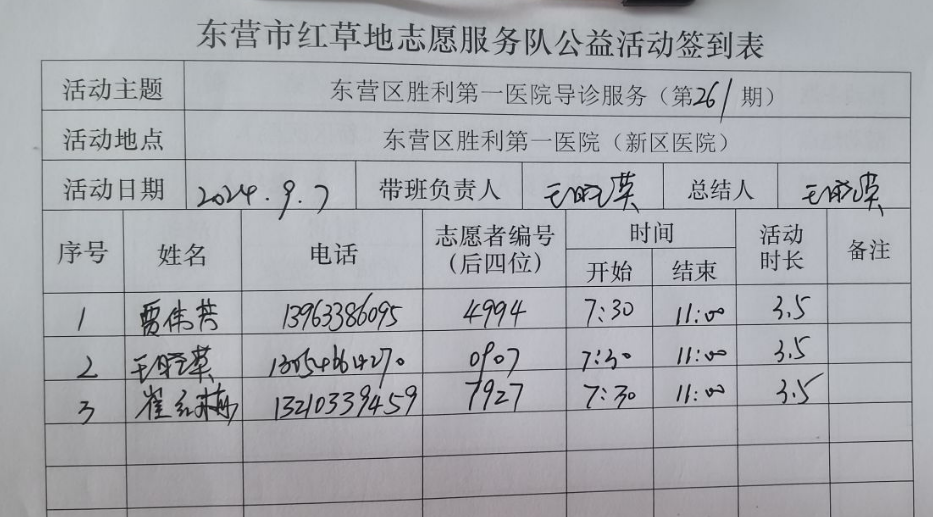 东营市红草地志愿服务队公益活动签到表
活动主题 东营区胜利第一医院导诊服务（第261期）
活动地点 东营区胜利第一医院（新区医院）
活动日期 2024.9.7 带班负责人 王晓英 总结人 王晓英
序号 姓名 电话 志愿者编号（后四位） 时间 开始 结束 活动时长 备注
1 贾伟芳 13963386095 4994 7:30 11:00 3.5
2 王晓英 13054664270 0907 7:30 11:00 3.5
3 崔红梅 13210339459 7927 7:30 11:00 3.5